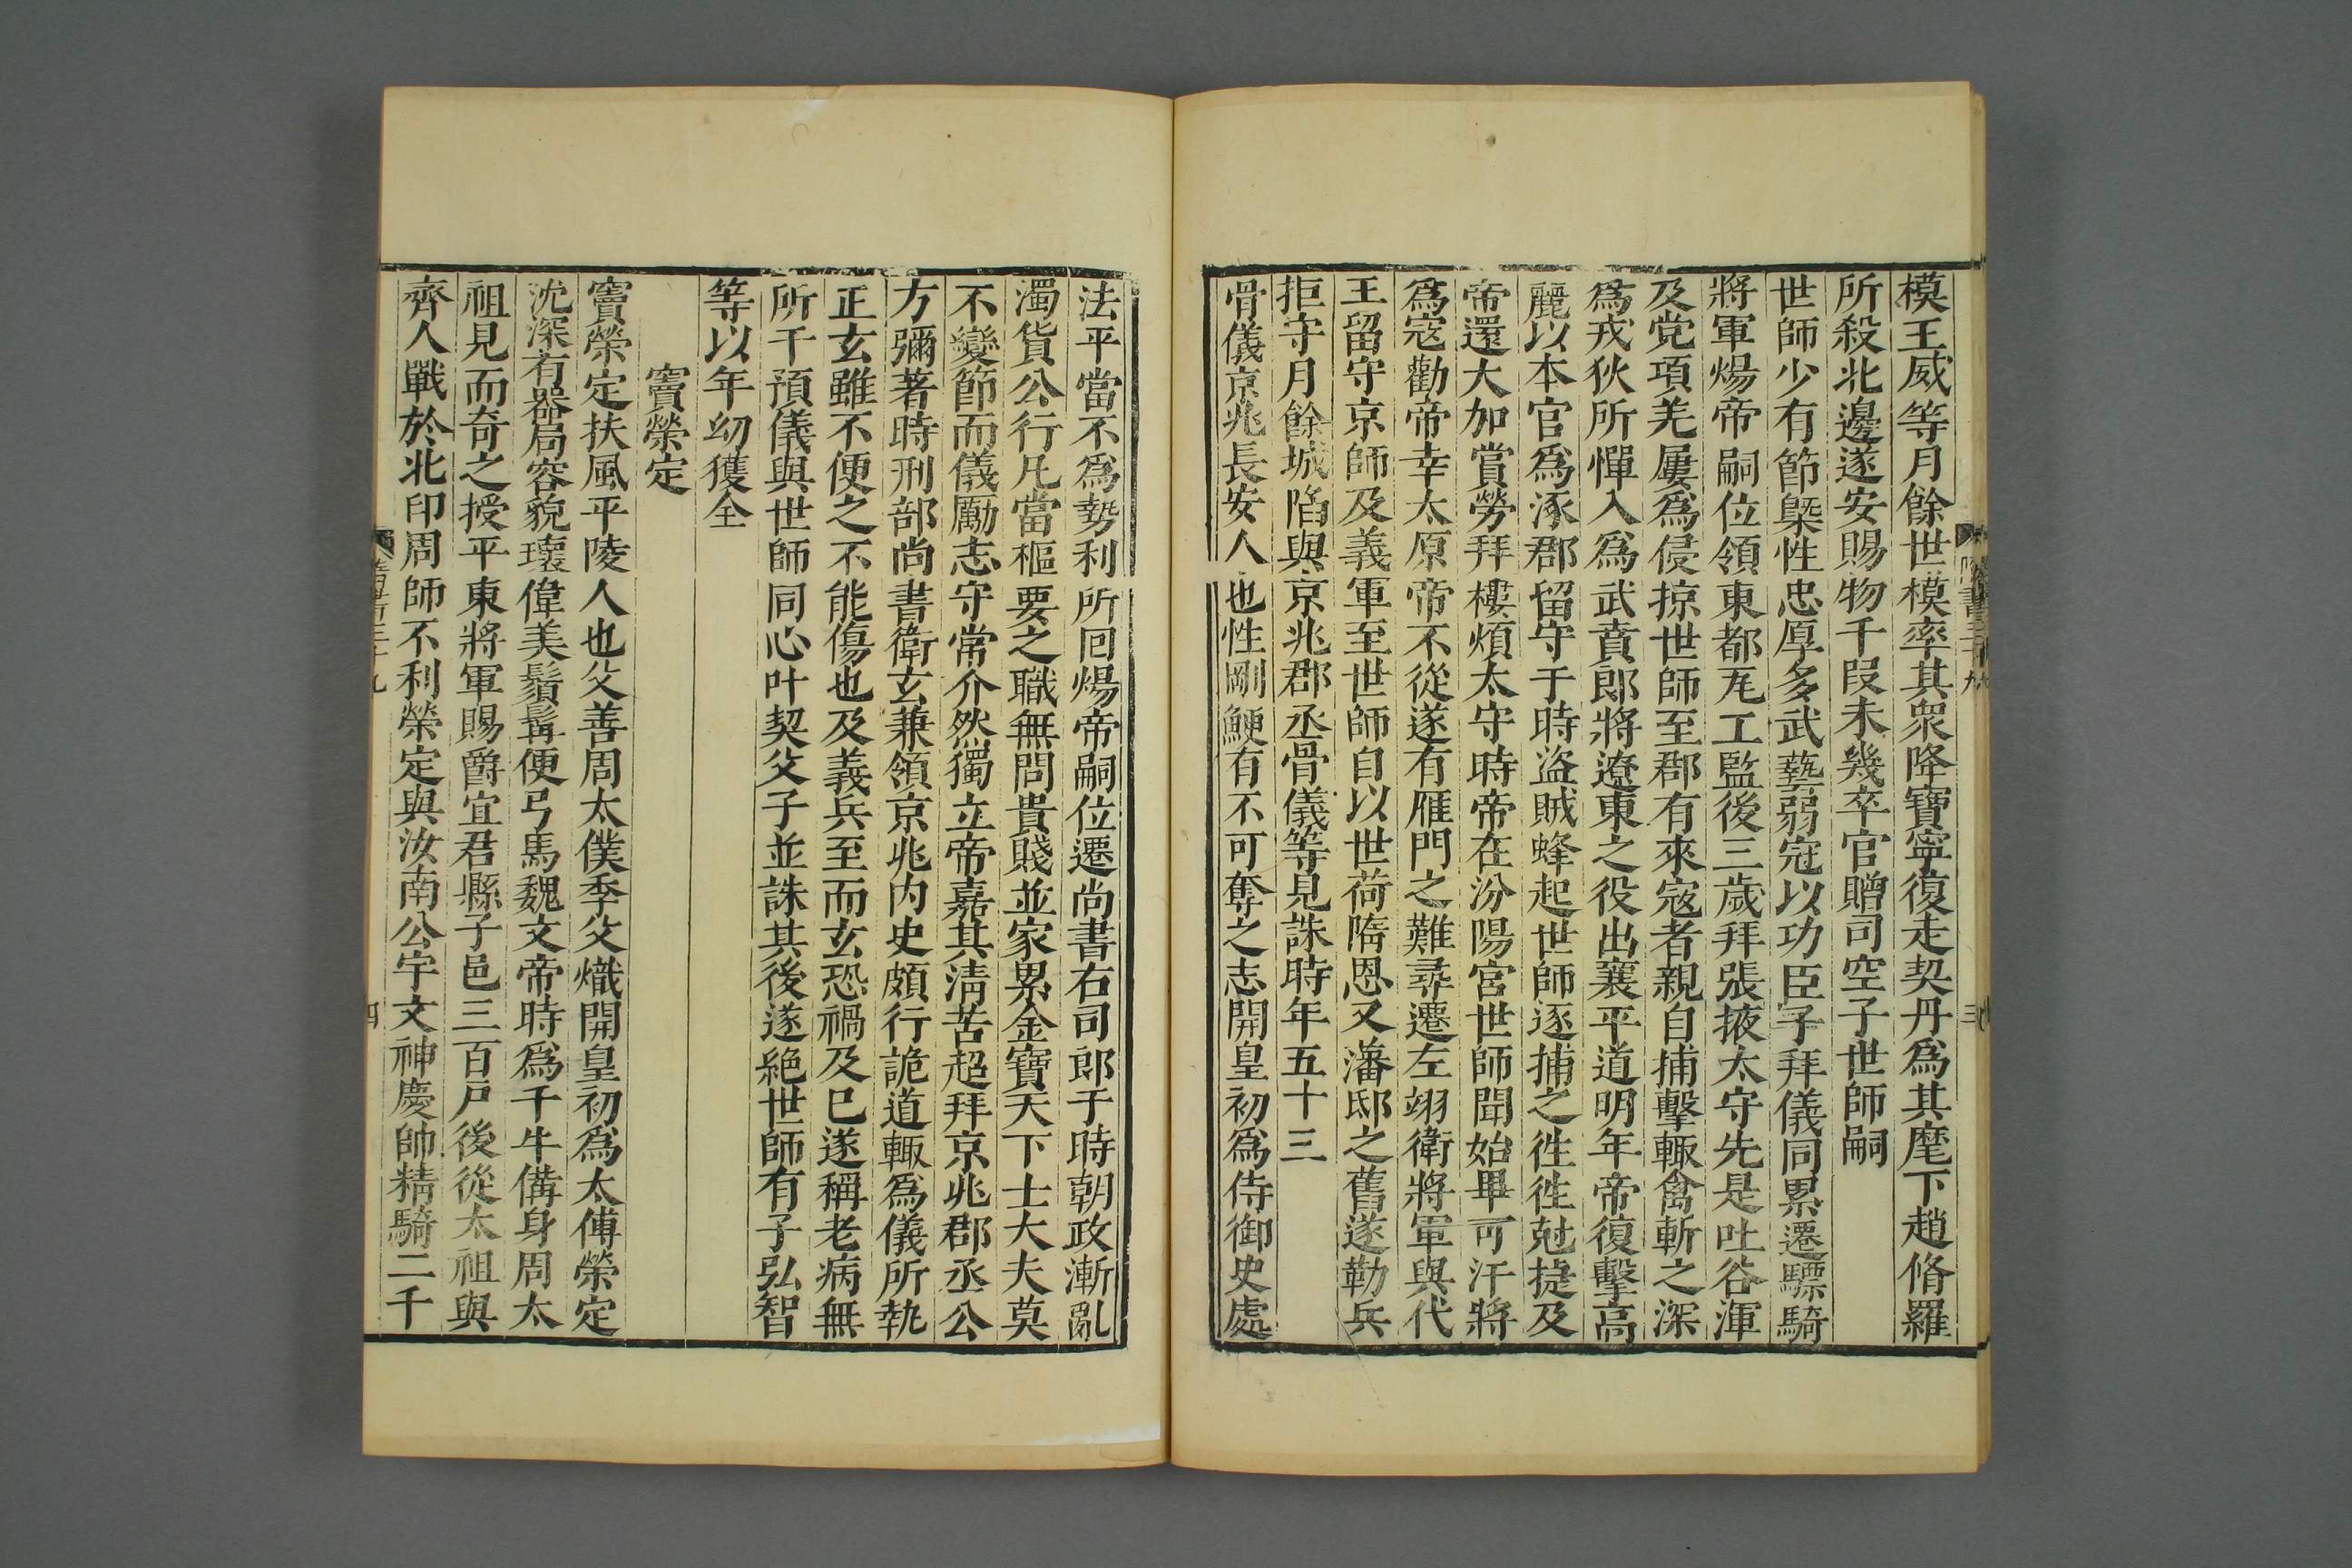 模王威等月餘世模率其眾降寶寧復走契丹爲其麾下趙脩羅
所殺北邊遂安賜物千段未幾卒官贈司空子世師嗣
世師少有節槩性忠厚多武藝弱冠以功臣子拜儀同累遷驃騎
將軍煬帝嗣位領東都瓦工監後三歲拜張掖太守先是吐谷渾
及党項羌屢爲侵掠世師至郡有來寇者親自捕擊輒禽斬之深
爲戎狄所憚入爲武賁郎將遼東之役出襄平道明年帝復擊高
麗以本官爲涿郡留守于時盜賊蜂起世師逐捕之徃徃尅捷及
帝還大加賞勞拜樓煩太守時帝在汾陽宮世師聞始畢可汗將
爲寇勸帝幸太原帝不從遂有雁門之難尋遷左翊衛將軍與代
王留守京師及義軍至世師自以世荷隋恩又藩邸之舊遂勒兵
拒守月餘城陷與京兆郡丞骨儀等見誅時年五十三
骨儀京兆長安人也性剛鯁有不可奪之志開皇初爲侍御史處
法平當不爲勢利所回煬帝嗣位遷尚書右司郎于時朝政漸亂
濁貨公行凡當樞要之職無問貴賤並家累金寶天下士大夫莫
不變節而儀勵志守常介然獨立帝嘉其清苦超拜京兆郡丞公
方彌著時刑部尚書衛玄兼領京兆內史頗行詭道輒爲儀所執
正玄雖不便之不能傷也及義兵至而玄恐禍及已遂稱老病無
所干預儀與世師同心叶契父子並誅其後遂絶世師有子弘智
等以年幼獲全
竇榮定
竇榮定扶風平陵人也父善周太僕季父熾開皇初爲太傅榮定
沈深有器局容貌瓌偉美鬚髯便弓馬魏文帝時爲千牛備身周太
祖見而奇之授平東將軍賜爵宜君縣子邑三百戶後從太祖與
齊人戰於北印周師不利榮定與汝南公宇文神慶帥精騎二千